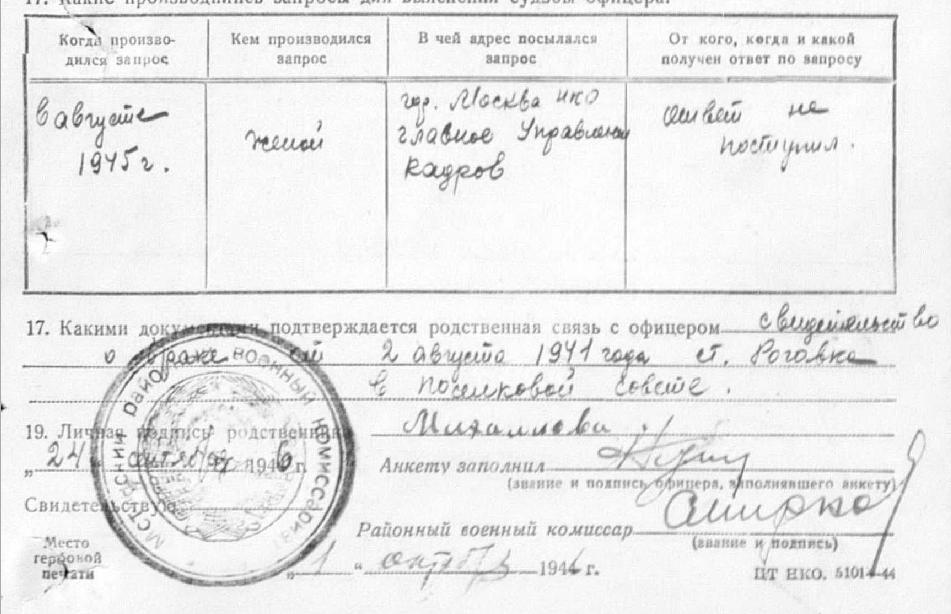 17. Какие производились запросы для выяснения судьбы офицера:
Когда произво-
дился запрос
Кем производился
запрос
В чей адрес посылался
запрос
От кого, когда и какой
получен ответ по запросу
В августе
1945 г.
женой
гор. Москва НКО
главное Управление
кадров
ответ не
поступил.
17. Какими документами подтверждается родственная связь с офицером свидетельство
о браке от 2 августа 1941 года ст. Роговка
в поселковой совете.
19. Личная подпись родственника
„24“ октября 1946
Анкету заполнил
(звание и подпись офицера, заполнявшего анкету)
Свидетельствую
Районный военный комиссар
(звание и подпись)
Место
гербовой
печати
„1“ октября 1946 г.
ЦТ НКО. 5101—44
РАЙОННЫЙ ВОЕННЫЙ КОМИССАРИАТ